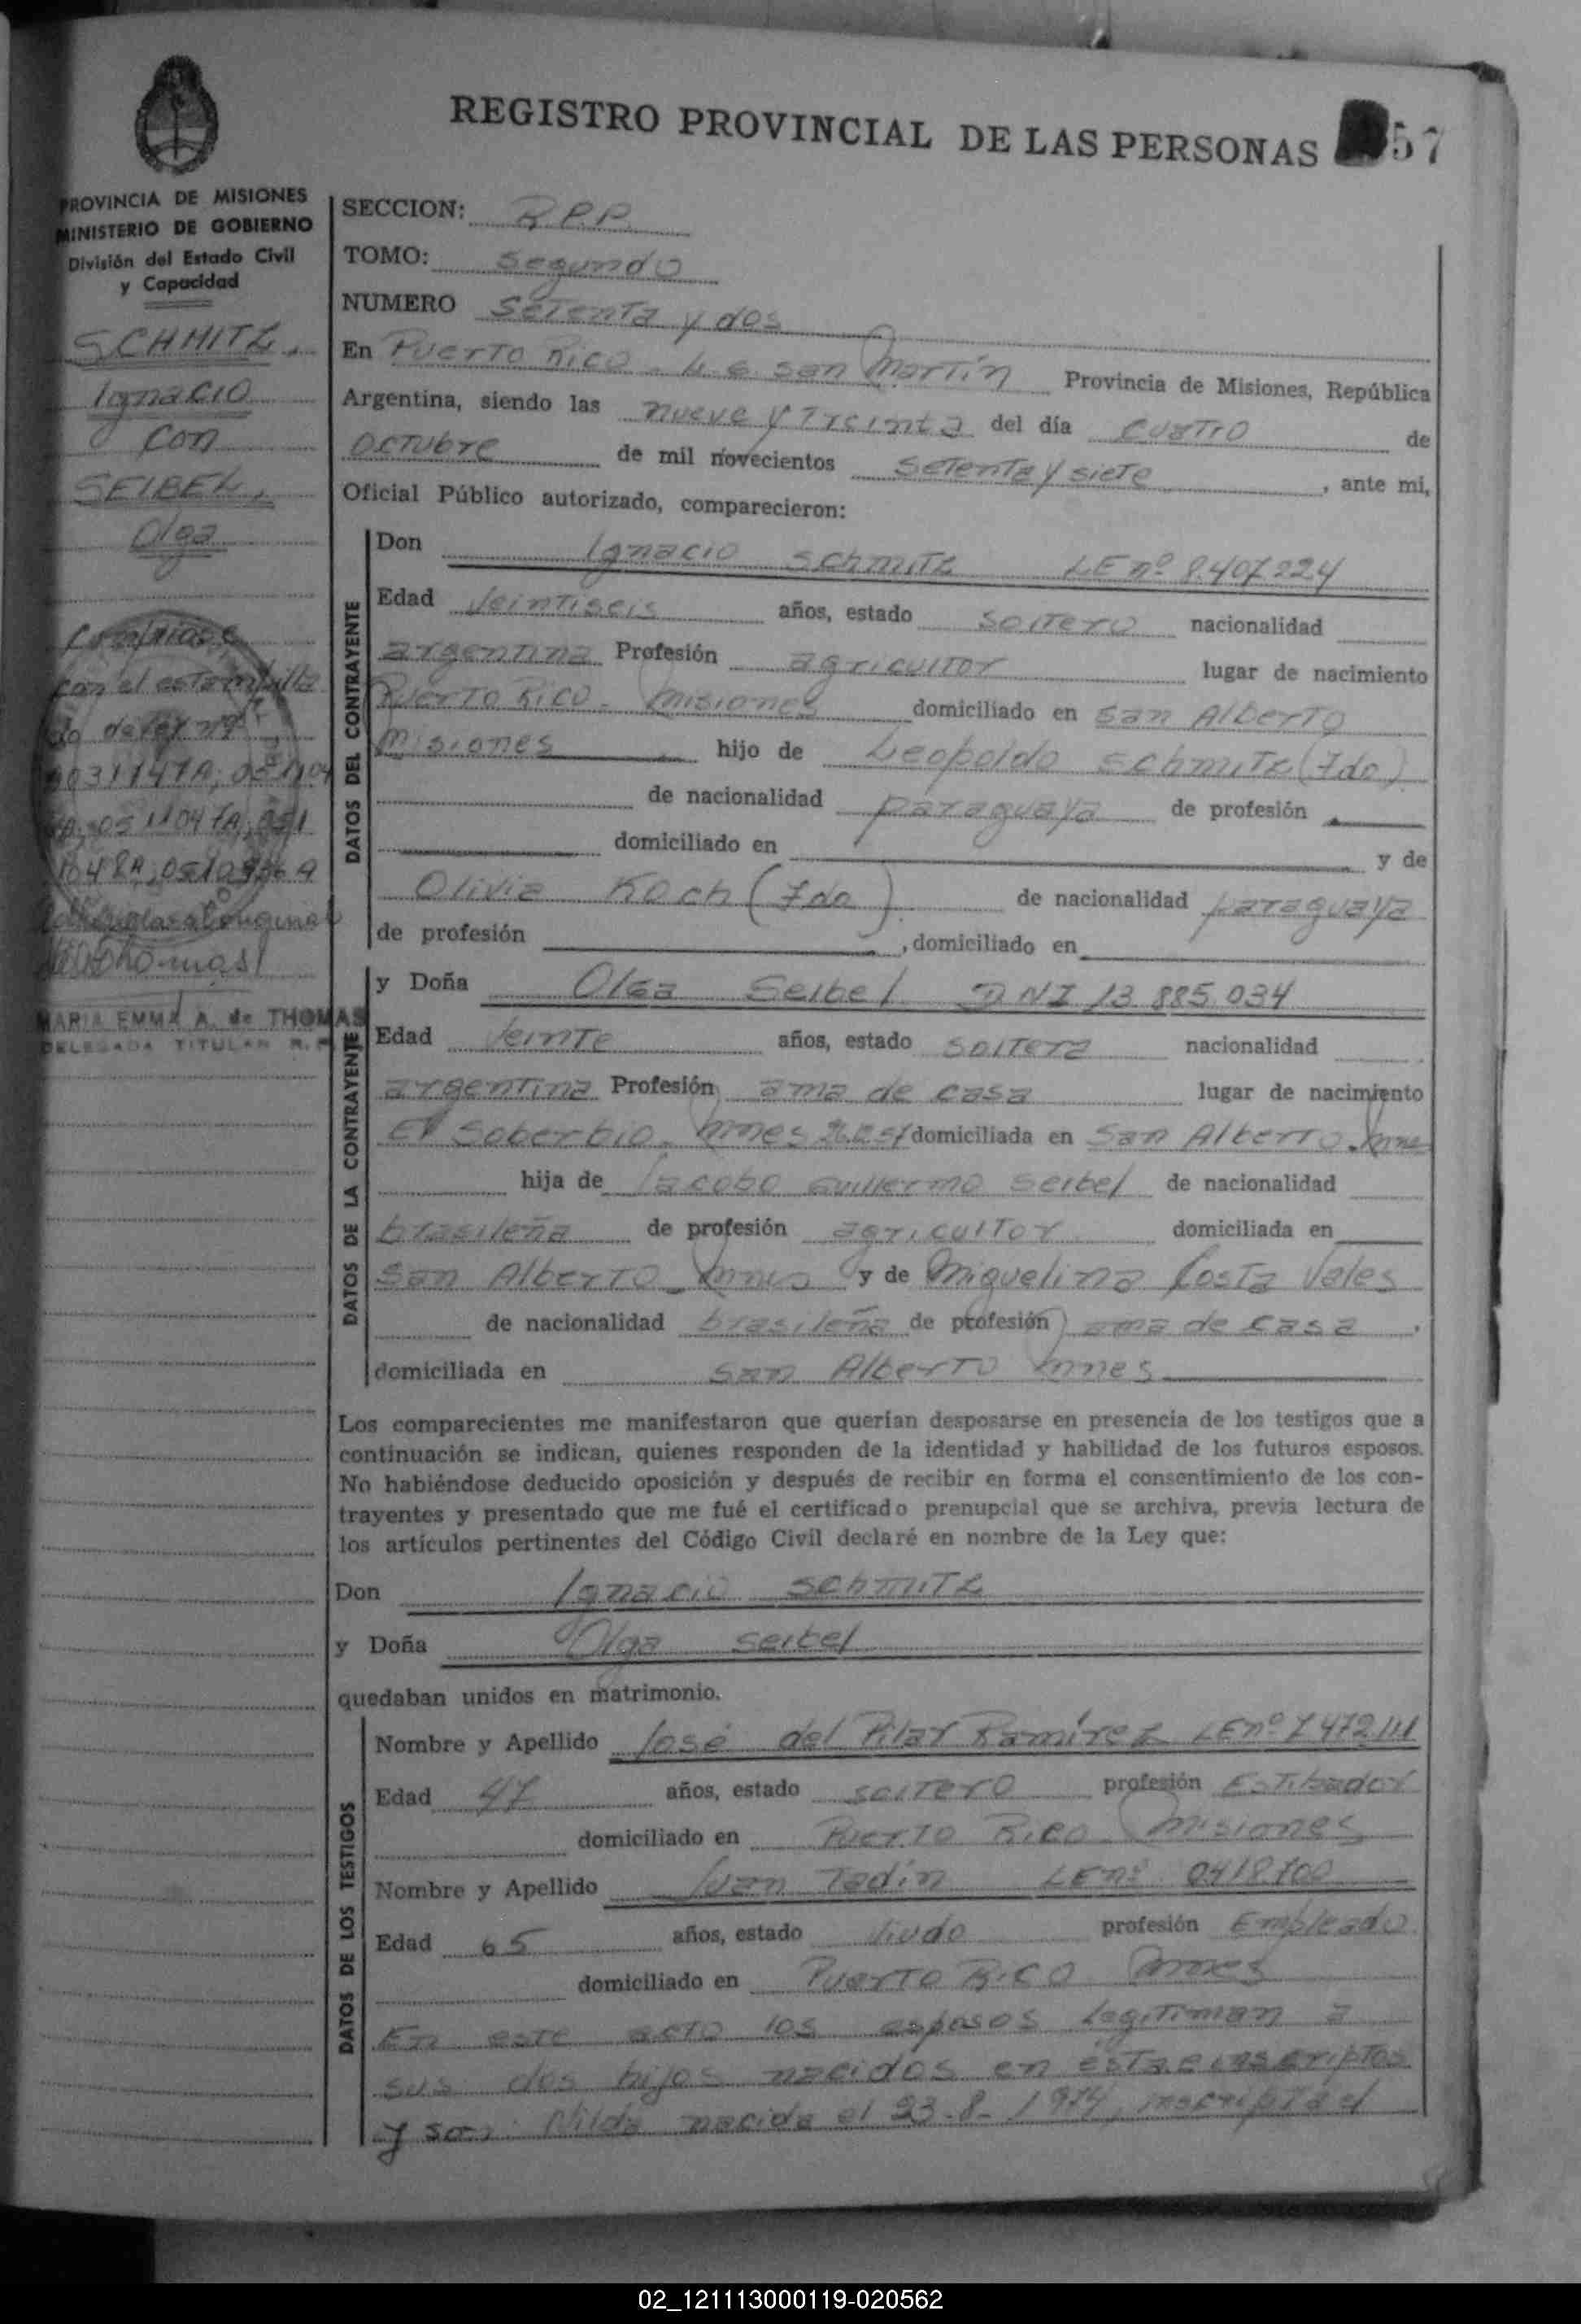 REGISTRO PROVINCIAL DE LAS PERSONAS 57
PROVINCIA DE MISIONES
MINISTERIO DE GOBIERNO
División del Estado Civil
y Capacidad
SCHMITZ,
Ignacio
con
SEIBEL,
Olga
con el estampilla
MARIA EMMA A. de THOMAS
DELEGADA TITULAR R. P.
SECCION: R.P.P.
TOMO: Segundo
NUMERO Setenta y dos
En Puerto Rico - L. G. San Martín Provincia de Misiones, República
Argentina, siendo las nueve y treinta del día cuatro de
octubre de mil novecientos setenta y siete, ante mi,
Oficial Público autorizado, comparecieron:
DATOS DEL CONTRAYENTE
Don Ignacio Schmitz LE nº 8.407.224
Edad Veintiseis años, estado soltero nacionalidad
argentina Profesión agricultor lugar de nacimiento
Puerto Rico - Misiones domiciliado en San Alberto
Misiones hijo de Leopoldo Schmitz (fdo)
de nacionalidad paraguaya de profesión
domiciliado en y de
Olivia Koch (fda) de nacionalidad paraguaya
de profesión , domiciliado en
DATOS DE LA CONTRAYENTE
y Doña Olga Seibel DNI 13.885.034
Edad Veinte años, estado soltera nacionalidad
argentina Profesión ama de casa lugar de nacimiento
El Soberbio - Mnes domiciliada en San Alberto - Mnes
hija de Jacobo Guillermo Seibel de nacionalidad
brasileña de profesión agricultor domiciliada en
San Alberto - Mnes y de Miguelina Costa Vales
de nacionalidad brasileña de profesión ama de casa,
domiciliada en San Alberto Mnes
Los comparecientes me manifestaron que querían desposarse en presencia de los testigos que a
continuación se indican, quienes responden de la identidad y habilidad de los futuros esposos.
No habiéndose deducido oposición y después de recibir en forma el consentimiento de los con-
trayentes y presentado que me fué el certificado prenupcial que se archiva, previa lectura de
los artículos pertinentes del Código Civil declaré en nombre de la Ley que:
Don Ignacio Schmitz
y Doña Olga Seibel
quedaban unidos en matrimonio.
DATOS DE LOS TESTIGOS
Nombre y Apellido José del Pilar Ramírez LE nº 7.472.111
Edad 47 años, estado soltero profesión Estibador
domiciliado en Puerto Rico - Misiones
Nombre y Apellido Juan Tadin LE nº 0418.700
Edad 65 años, estado Viudo profesión Empleado
domiciliado en Puerto Rico Mnes
En este acto los esposos legitiman a
sus dos hijos nacidos en ésta e inscriptos
y son: Nilda nacida el 23-8-1974, inscripta el
02_121113000119-020562